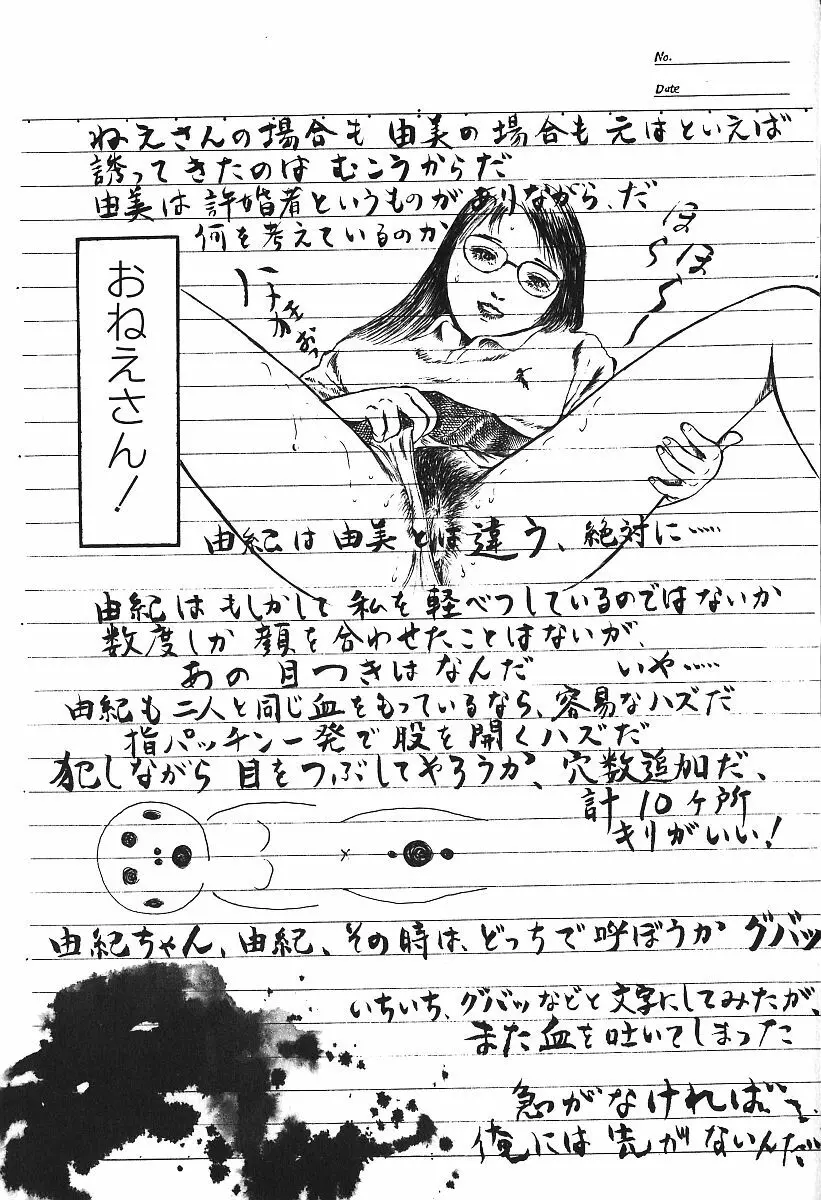 No.
Date
ねえさんの場合も 由美の場合も 元はといえば
誘ってきたのは むこうからだ
由美は許婚者というものがありながら、だ
何を考えているのか
ほ〜ほ〜
おねえさん!
由紀は由美とは違う、絶対に……
由紀はもしかして私を軽べつしているのではないか
数度しか顔を合わせたことはないが、
あの目つきはなんだ いや……
由紀も二人と同じ血をもっているなら、容易なハズだ
指パッチン一発で股を開くハズだ
犯しながら目をつぶしてやろうか、穴数追加だ、
計10ヶ所
キリがいい!
由紀ちゃん、由紀、その時は、どっちで呼ぼうか グバッ
いちいち、グバッなどと文字にしてみたが、
また血を吐いてしまった
急がなければ
俺には先がないんだ